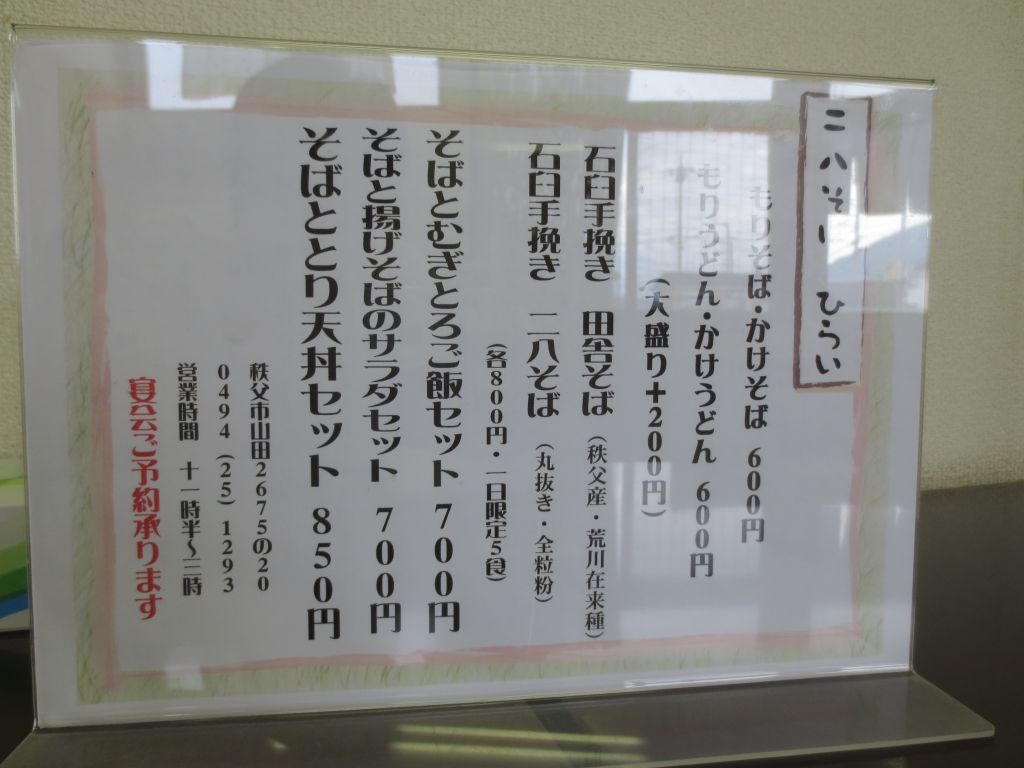 二八そばー ひらい
もりそば・かけそば 600円
もりうどん・かけうどん 600円
(大盛り+200円)
石臼手挽き 田舎そば (秩父産・荒川在来種)
石臼手挽き 二八そば (丸抜き・全粒粉)
(各800円・一日限定5食)
そばとむぎとろご飯セット 700円
そばと揚げそばのサラダセット 700円
そばととり天丼セット 850円
秩父市山田2675の20
0494(25)1293
営業時間 十一時半～三時
宴会ご予約承ります